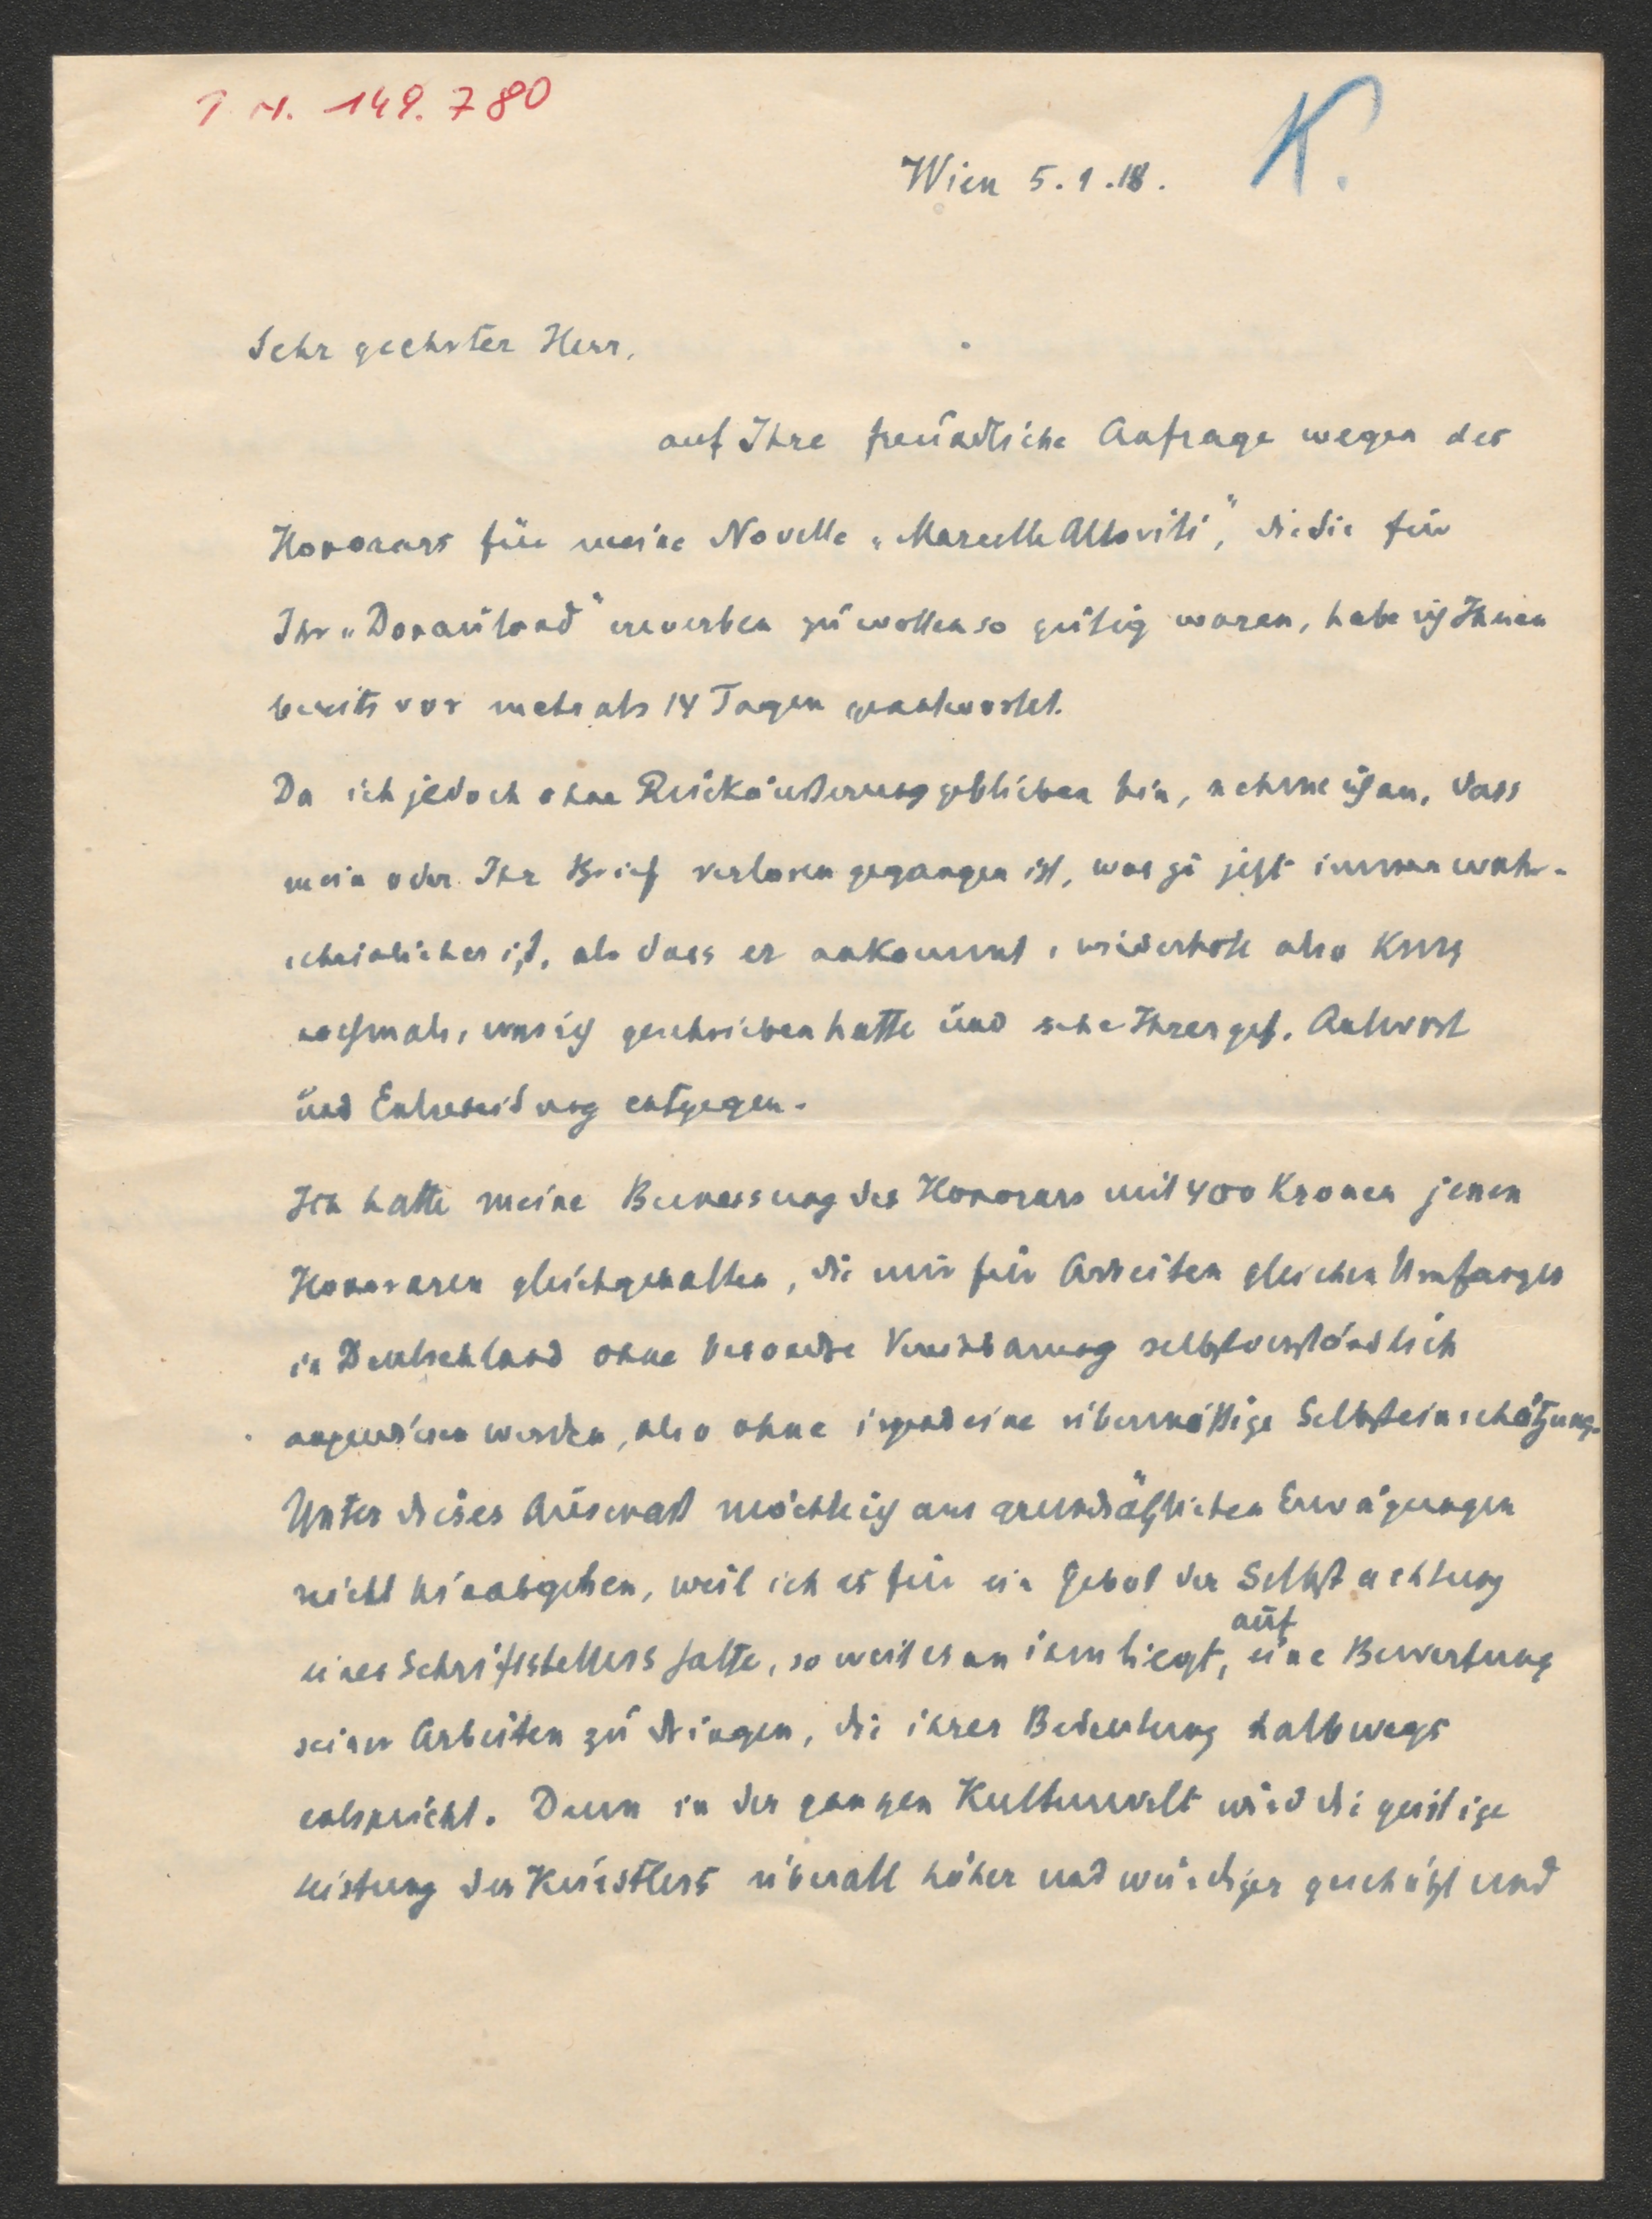 I N. 149.780
K.
Wien 5.1.18.
Sehr geehrter Herr,
auf Ihre freundliche Anfrage wegen des
Honorars für meine Novelle „Marcella Altoviti“, die Sie für
Ihr „Donauland“ erwerben zu wollen so gütig waren, habe ich Ihnen
bereits vor mehr als 14 Tagen geantwortet.
Da ich jedoch ohne Rückäußerung geblieben bin, nehme ich an, dass
mein oder Ihr Brief verloren gegangen ist, was ja jetzt immer wahr-
scheinlicher ist, als dass er ankommt, wiederhole also kurz
nochmals, was ich geschrieben hatte und sehe Ihrer gef. Antwort
und Entscheidung entgegen.
Ich hatte meine Bemessung des Honorars mit 400 Kronen jenen
Honoraren gleichgehalten, die mir für Arbeiten gleichen Umfanges
in Deutschland ohne besondre Vereinbarung selbstverständlich
angewiesen werden, also ohne irgendeine übermäßige Selbsteinschätzung.
Unter dieses Ausmaß möchte ich aus grundsätzlichen Erwägungen
nicht hinabgehen, weil ich es für ein Gebot der Selbstachtung
eines Schriftstellers halte, so weit es an ihm liegt, auf eine Bewertung
seiner Arbeiten zu dringen, die ihrer Bedeutung halbwegs
entspricht. Denn in der ganzen Kulturwelt wird die geistige
Leistung des Künstlers überall höher und würdiger geschätzt und